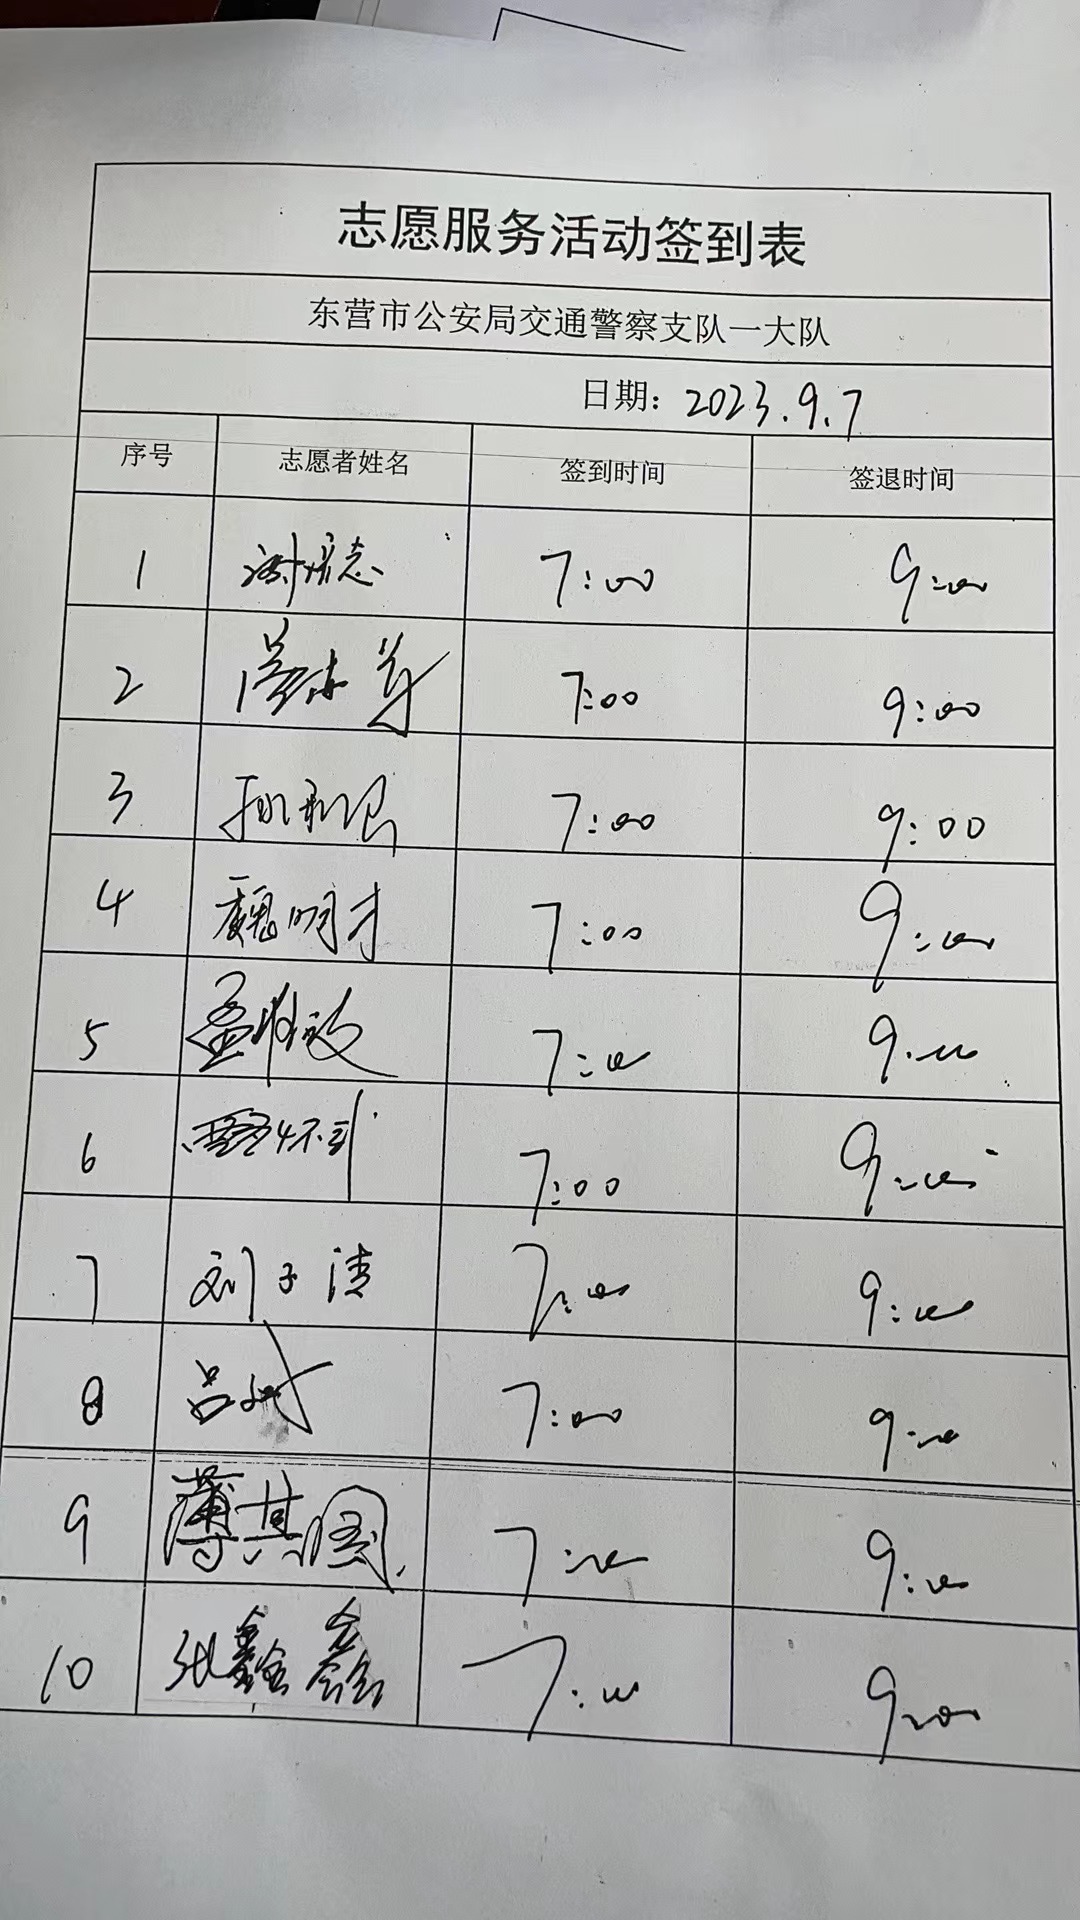 志愿服务活动签到表
东营市公安局交通警察支队一大队
日期：2023.9.7
序号 志愿者姓名 签到时间 签退时间
1 7:00 9:00
2 7:00 9:00
3 7:00 9:00
4 魏明才 7:00 9:00
5 7:00 9:00
6 7:00 9:00
7 刘子清 7:00 9:00
8 吕斌 7:00 9:00
9 薄其国 7:00 9:00
10 张鑫鑫 7:00 9:00